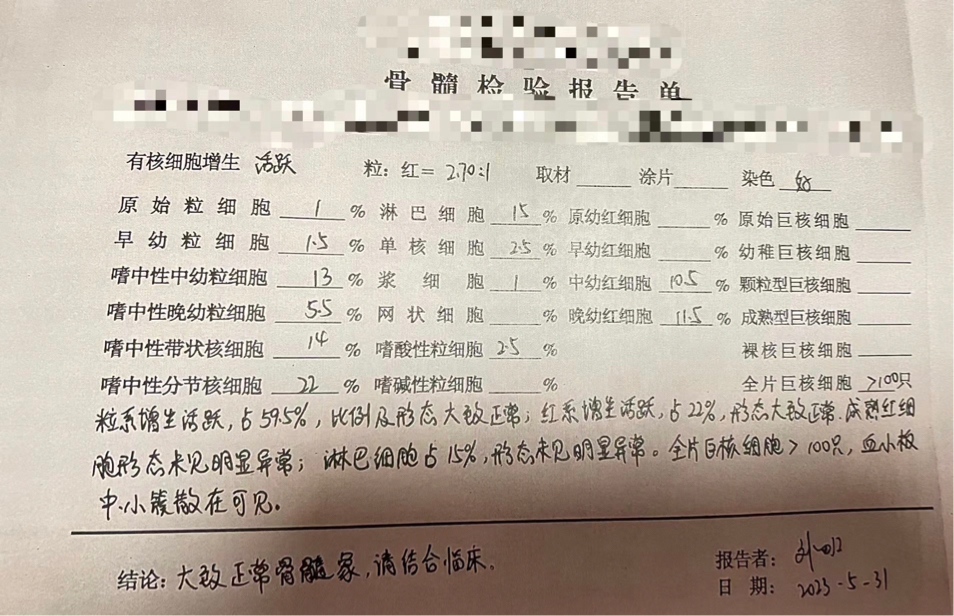 骨髓检验报告单
有核细胞增生 活跃 粒：红＝ 2.70:1 取材 涂片 染色 好
原始粒细胞 1 % 淋巴细胞 15 % 原幼红细胞 % 原始巨核细胞
早幼粒细胞 1.5 % 单核细胞 2.5 % 早幼红细胞 % 幼稚巨核细胞
嗜中性中幼粒细胞 13 % 浆细胞 1 % 中幼红细胞 10.5 % 颗粒型巨核细胞
嗜中性晚幼粒细胞 5.5 % 网状细胞 % 晚幼红细胞 11.5 % 成熟型巨核细胞
嗜中性带状核细胞 14 % 嗜酸性粒细胞 2.5 % 裸核巨核细胞
嗜中性分节核细胞 22 % 嗜碱性粒细胞 % 全片巨核细胞 >100只
粒系增生活跃，占59.5%，比例及形态大致正常；红系增生活跃，占22%，形态大致正常.成熟红细
胞形态未见明显异常；淋巴细胞占15%，形态未见明显异常。全片巨核细胞>100只，血小板
中.小簇散在可见。
结论：大致正常骨髓象，请结合临床。
报告者：
日期：2023-5-31